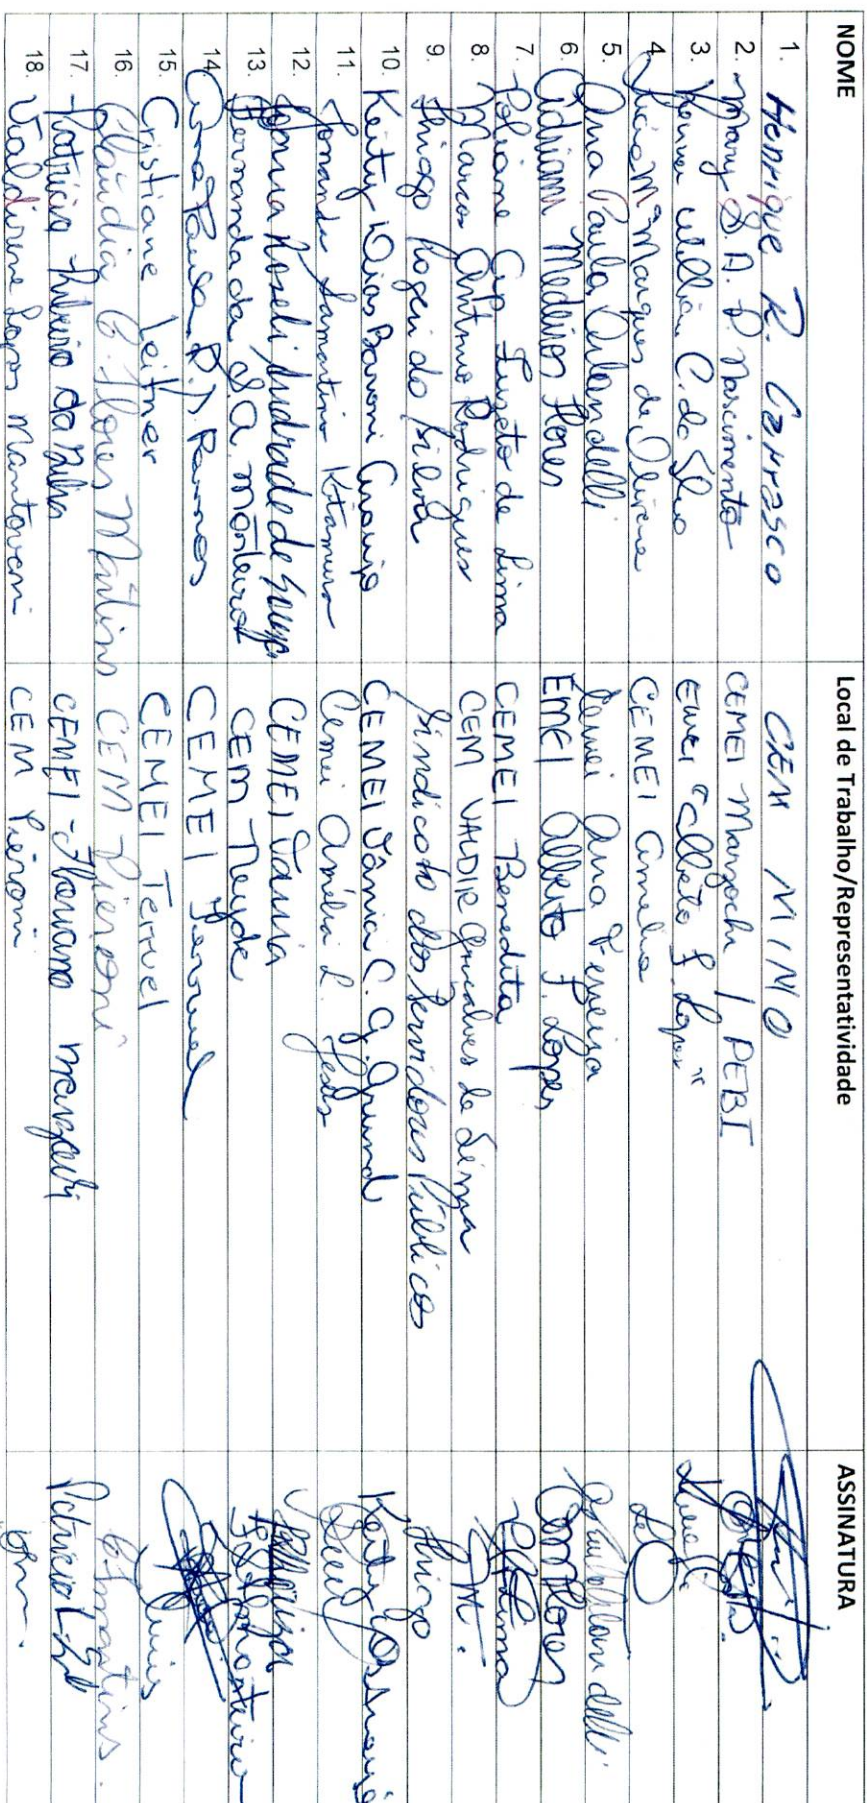 NOME Local de Trabalho/Representatividade ASSINATURA
1. Henrique R. Carrasco CEM MIMO
2. Mary S. A. P. Nascimento CEMEI Marzochi / PEBI
3. Willian C. da Silva EMEI "Alberto F. Lopes"
4. Lúcia Mª Marques de Oliveira CEMEI Amelia
5. Ana Paula Orlandelli Cemei Ana Pereira
6. Adriana Medeiros Flores EMEI Alberto F. Lopes
7. Poliane Cip Luzeto de Lima CEMEI Benedita
8. Marcos Antonio Rodrigues CEM VALDIR Gonçalves de Lima
9. Thiago Rogeri da Silva Sindicato dos Servidores Públicos Thiago
10. Keity Dias Baroni Araujo CEMEI Vânia C. G. Grund Keity
11. Fernanda Samartino Kitamura Cemei Amélia L. Jesus
12. Roseli Andrade de Souza CEMEI Vania
13. Fernanda da S. A. Monteiro CEM Neyde Monteiro
14. Ana Paula R. D. Ramos CEMEI Terruel
15. Cristiane Leitner CEMEI Terruel
16. Cláudia C. Flores Martins CEM Pieroni CFMartins.
17. Patricia Ribeiro da Silva CEMEI - Floriano Marzochi Patricia
18. Valdirene Lopes Mantovani CEM Pieroni